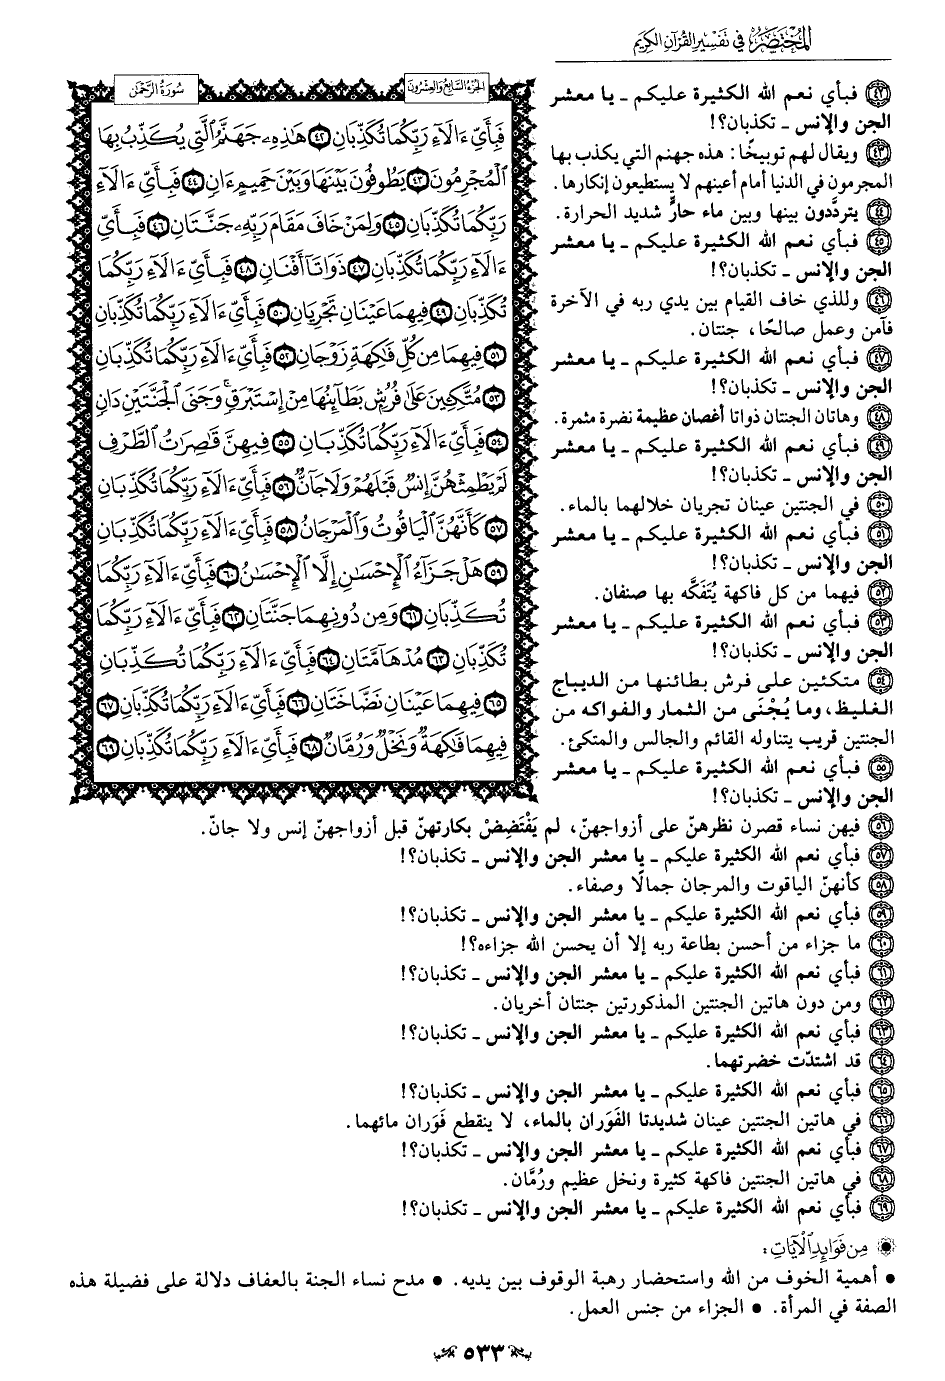 المختصر في تفسير القرآن الكريم
الجزء السابع والعشرون
سورة الرحمن
فَبِأَيِّ ءَالَآءِ رَبِّكُمَا تُكَذِّبَانِ ٤٢ هَٰذِهِۦ جَهَنَّمُ ٱلَّتِي يُكَذِّبُ بِهَا
ٱلْمُجْرِمُونَ ٤٣ يَطُوفُونَ بَيْنَهَا وَبَيْنَ حَمِيمٍ ءَانٍ ٤٤ فَبِأَيِّ ءَالَآءِ
رَبِّكُمَا تُكَذِّبَانِ ٤٥ وَلِمَنْ خَافَ مَقَامَ رَبِّهِۦ جَنَّتَانِ ٤٦ فَبِأَيِّ
ءَالَآءِ رَبِّكُمَا تُكَذِّبَانِ ٤٧ ذَوَاتَآ أَفْنَانٍ ٤٨ فَبِأَيِّ ءَالَآءِ رَبِّكُمَا
تُكَذِّبَانِ ٤٩ فِيهِمَا عَيْنَانِ تَجْرِيَانِ ٥٠ فَبِأَيِّ ءَالَآءِ رَبِّكُمَا تُكَذِّبَانِ
٥١ فِيهِمَا مِن كُلِّ فَٰكِهَةٍ زَوْجَانِ ٥٢ فَبِأَيِّ ءَالَآءِ رَبِّكُمَا تُكَذِّبَانِ
٥٣ مُتَّكِـِٔينَ عَلَىٰ فُرُشٍۭ بَطَآئِنُهَا مِنْ إِسْتَبْرَقٍ ۚ وَجَنَى ٱلْجَنَّتَيْنِ دَانٍ
٥٤ فَبِأَيِّ ءَالَآءِ رَبِّكُمَا تُكَذِّبَانِ ٥٥ فِيهِنَّ قَٰصِرَٰتُ ٱلطَّرْفِ
لَمْ يَطْمِثْهُنَّ إِنسٌ قَبْلَهُمْ وَلَا جَآنٌّ ٥٦ فَبِأَيِّ ءَالَآءِ رَبِّكُمَا تُكَذِّبَانِ
٥٧ كَأَنَّهُنَّ ٱلْيَاقُوتُ وَٱلْمَرْجَانُ ٥٨ فَبِأَيِّ ءَالَآءِ رَبِّكُمَا تُكَذِّبَانِ
٥٩ هَلْ جَزَآءُ ٱلْإِحْسَٰنِ إِلَّا ٱلْإِحْسَٰنُ ٦٠ فَبِأَيِّ ءَالَآءِ رَبِّكُمَا
تُكَذِّبَانِ ٦١ وَمِن دُونِهِمَا جَنَّتَانِ ٦٢ فَبِأَيِّ ءَالَآءِ رَبِّكُمَا
تُكَذِّبَانِ ٦٣ مُدْهَآمَّتَانِ ٦٤ فَبِأَيِّ ءَالَآءِ رَبِّكُمَا تُكَذِّبَانِ
٦٥ فِيهِمَا عَيْنَانِ نَضَّاخَتَانِ ٦٦ فَبِأَيِّ ءَالَآءِ رَبِّكُمَا تُكَذِّبَانِ ٦٧
فِيهِمَا فَٰكِهَةٌ وَنَخْلٌ وَرُمَّانٌ ٦٨ فَبِأَيِّ ءَالَآءِ رَبِّكُمَا تُكَذِّبَانِ ٦٩
٤٢ فبأي نعم الله الكثيرة عليكم ـ يا معشر
الجن والإنس ـ تكذبان؟!
٤٣ ويقال لهم توبيخًا: هذه جهنم التي يكذب بها
المجرمون في الدنيا أمام أعينهم لا يستطيعون إنكارها.
٤٤ يتردَّدون بينها وبين ماء حارٍّ شديد الحرارة.
٤٥ فبأي نعم الله الكثيرة عليكم ـ يا معشر
الجن والإنس ـ تكذبان؟!
٤٦ وللذي خاف القيام بين يدي ربه في الآخرة
فآمن وعمل صالحًا، جنتان.
٤٧ فبأي نعم الله الكثيرة عليكم ـ يا معشر
الجن والإنس ـ تكذبان؟!
٤٨ وهاتان الجنتان ذواتا أغصان عظيمة نضرة مثمرة.
٤٩ فبأي نعم الله الكثيرة عليكم ـ يا معشر
الجن والإنس ـ تكذبان؟!
٥٠ في الجنتين عينان تجريان خلالهما بالماء.
٥١ فبأي نعم الله الكثيرة عليكم ـ يا معشر
الجن والإنس ـ تكذبان؟!
٥٢ فيهما من كل فاكهة يُتَفَكَّه بها صنفان.
٥٣ فبأي نعم الله الكثيرة عليكم ـ يا معشر
الجن والإنس ـ تكذبان؟!
٥٤ متكئين على فرش بطائنها من الديباج
الغليظ، وما يُجْنَى من الثمار والفواكه من
الجنتين قريب يتناوله القائم والجالس والمتكئ.
٥٥ فبأي نعم الله الكثيرة عليكم ـ يا معشر
الجن والإنس ـ تكذبان؟!
٥٦ فيهن نساء قصرن نظرهنّ على أزواجهنّ، لم يَفْتَضِضْ بكارتهنّ قبل أزواجهنّ إنس ولا جانّ.
٥٧ فبأي نعم الله الكثيرة عليكم ـ يا معشر الجن والإنس ـ تكذبان؟!
٥٨ كأنهنّ الياقوت والمرجان جمالًا وصفاء.
٥٩ فبأي نعم الله الكثيرة عليكم ـ يا معشر الجن والإنس ـ تكذبان؟!
٦٠ ما جزاء من أحسن بطاعة ربه إلا أن يحسن الله جزاءه؟!
٦١ فبأي نعم الله الكثيرة عليكم ـ يا معشر الجن والإنس ـ تكذبان؟!
٦٢ ومن دون هاتين الجنتين المذكورتين جنتان أخريان.
٦٣ فبأي نعم الله الكثيرة عليكم ـ يا معشر الجن والإنس ـ تكذبان؟!
٦٤ قد اشتدّت خضرتهما.
٦٥ فبأي نعم الله الكثيرة عليكم ـ يا معشر الجن والإنس ـ تكذبان؟!
٦٦ في هاتين الجنتين عينان شديدتا الفَوَران بالماء، لا ينقطع فَوَران مائهما.
٦٧ فبأي نعم الله الكثيرة عليكم ـ يا معشر الجن والإنس ـ تكذبان؟!
٦٨ في هاتين الجنتين فاكهة كثيرة ونخل عظيم ورُمَّان.
٦٩ فبأي نعم الله الكثيرة عليكم ـ يا معشر الجن والإنس ـ تكذبان؟!
من فوائد الآيات:
• أهمية الخوف من الله واستحضار رهبة الوقوف بين يديه. • مدح نساء الجنة بالعفاف دلالة على فضيلة هذه
الصفة في المرأة. • الجزاء من جنس العمل.
٥٣٣